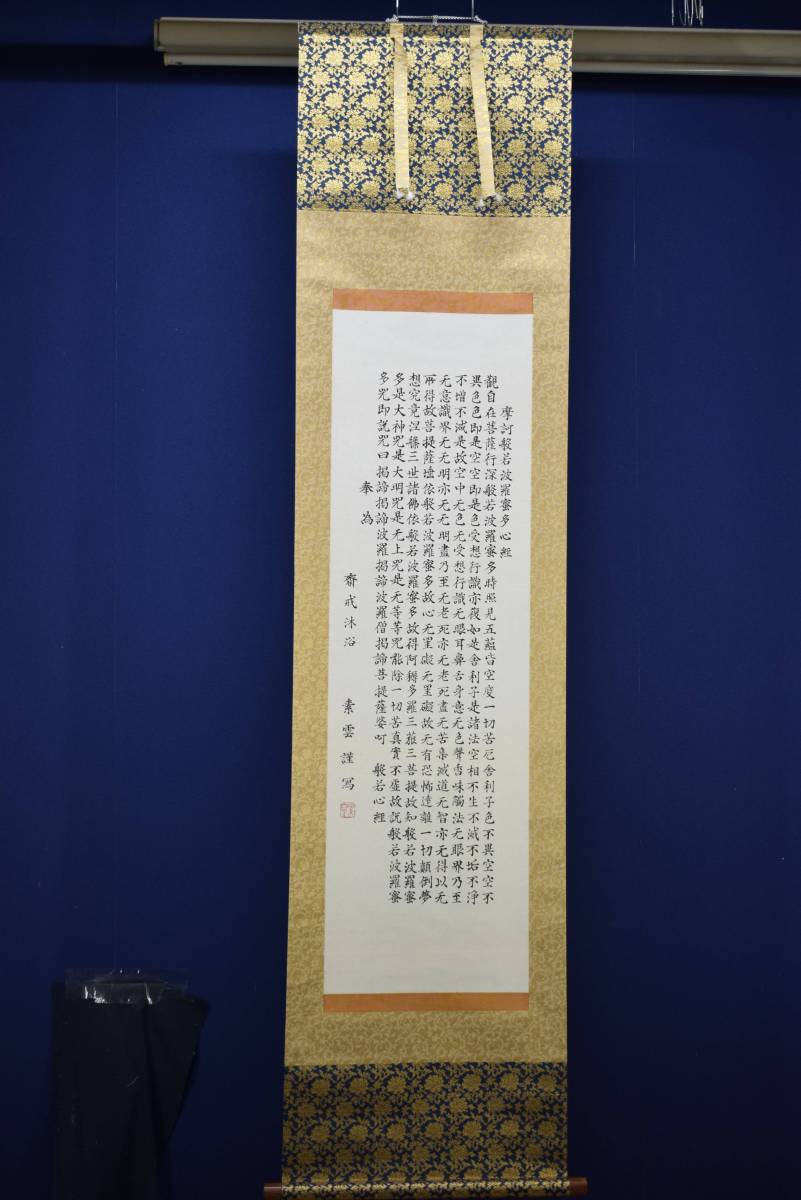 摩訶般若波羅蜜多心経
觀自在菩薩行深般若波羅蜜多時照見五蘊皆空度一切苦厄舍利子色不異空空不
異色色即是空空即是色受想行識亦復如是舍利子是諸法空相不生不滅不垢不浄
不增不減是故空中无色无受想行識无眼耳鼻舌身意无色聲香味觸法无眼界乃至
无意識界无无明亦无无明盡乃至无老死亦无老死盡无苦集滅道无智亦无得以无
所得故菩提薩埵依般若波羅蜜多故心无罣礙无罣礙故无有恐怖遠離一切顛倒夢
想究竟涅槃三世諸佛依般若波羅蜜多故得阿耨多羅三藐三菩提故知般若波羅蜜
多是大神咒是大明咒是无上咒是无等等咒能除一切苦真實不虛故説般若波羅蜜
多咒即説咒曰揭諦揭諦波羅揭諦波羅僧揭諦菩提薩婆呵 般若心経
奉為
齋戒沐浴 素雲謹寫